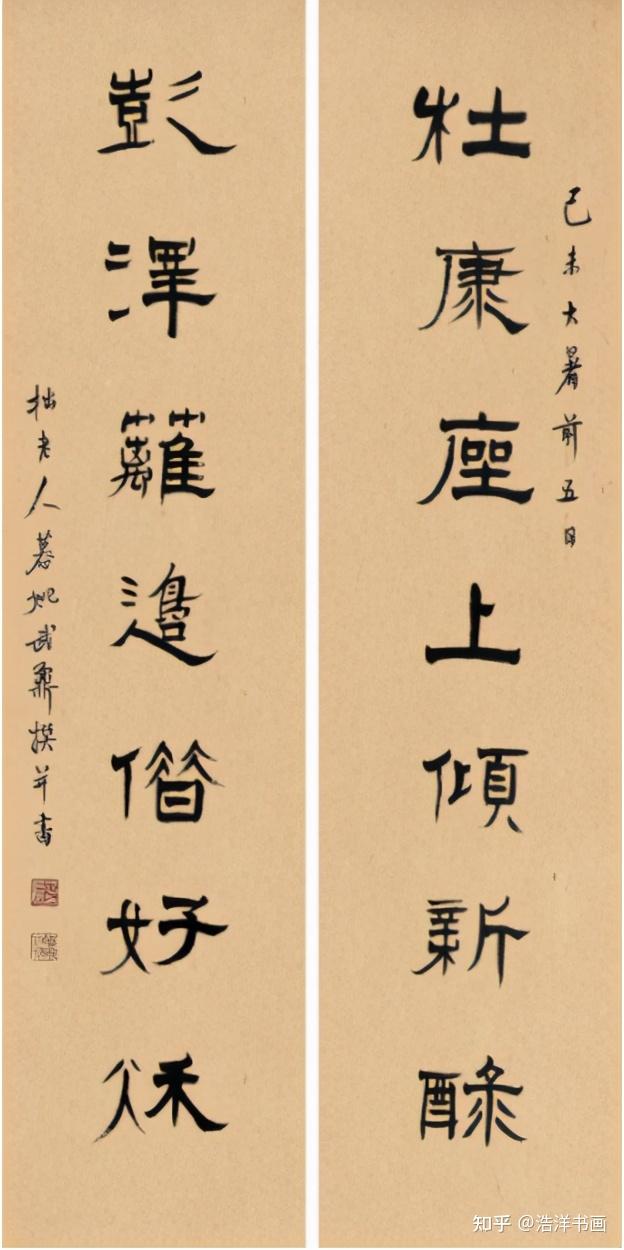 己未大暑前五日
杜康座上傾新醁
彭澤蘺邊僣好秌
拙老人慕姚武鼐撰并書
知乎 @浩洋书画